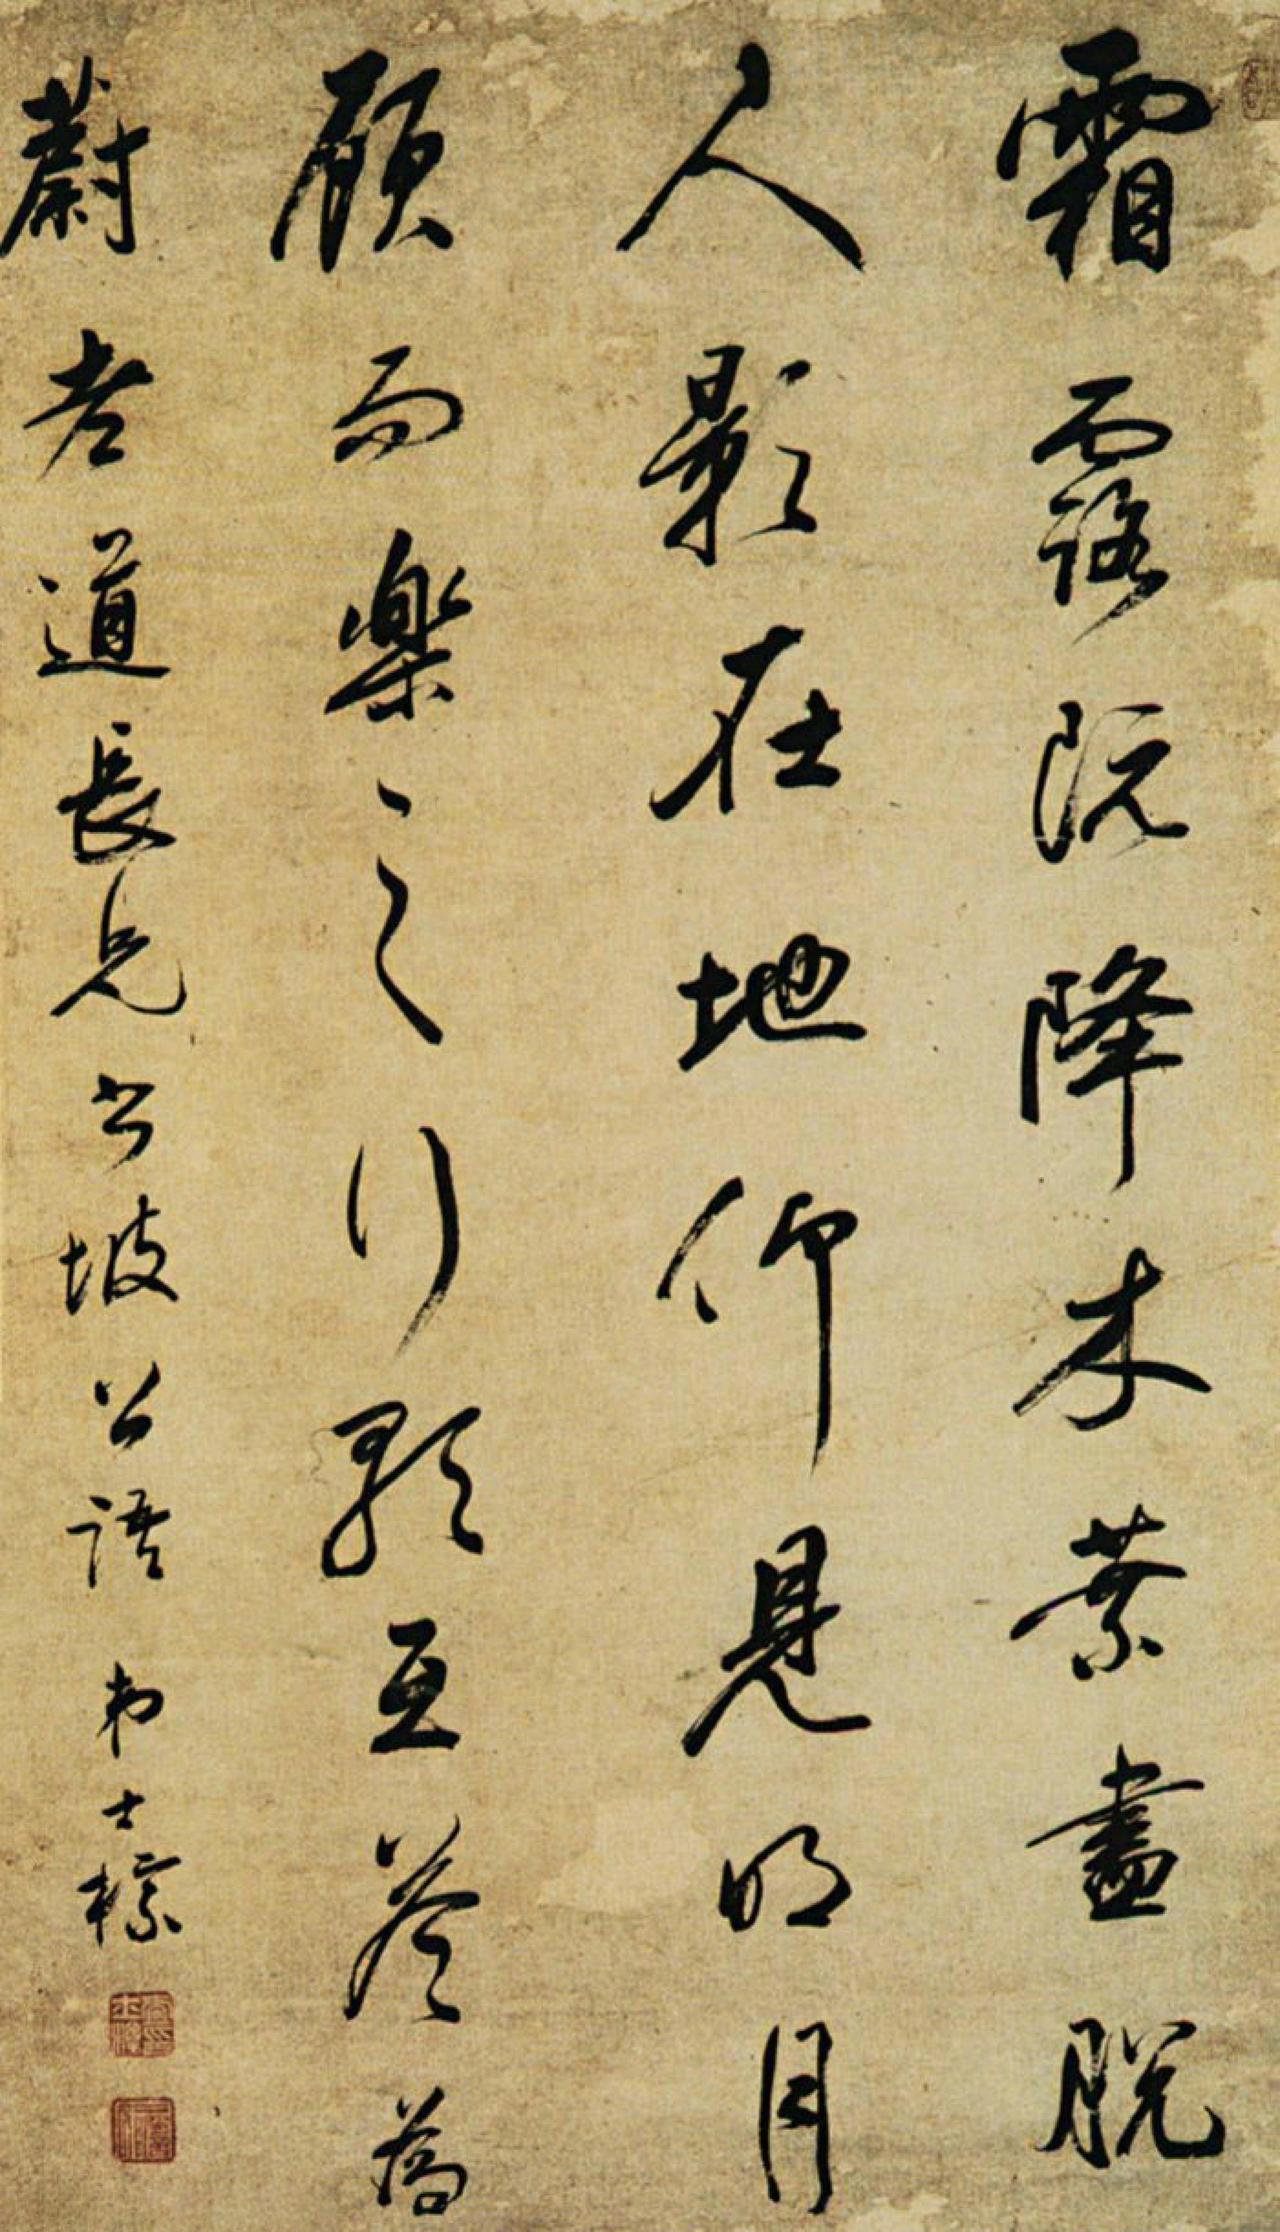 霜露既降木葉盡脫
人影在地仰見明月
顧而樂之行歌互荅為
蔚老道長兄書坡公語 弟士標